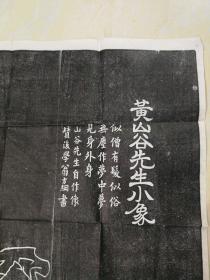 黃山谷先生小象
似僧有髮似俗
無塵作夢中夢
見身外身
山谷先生自作像
贊後學翁方綱書